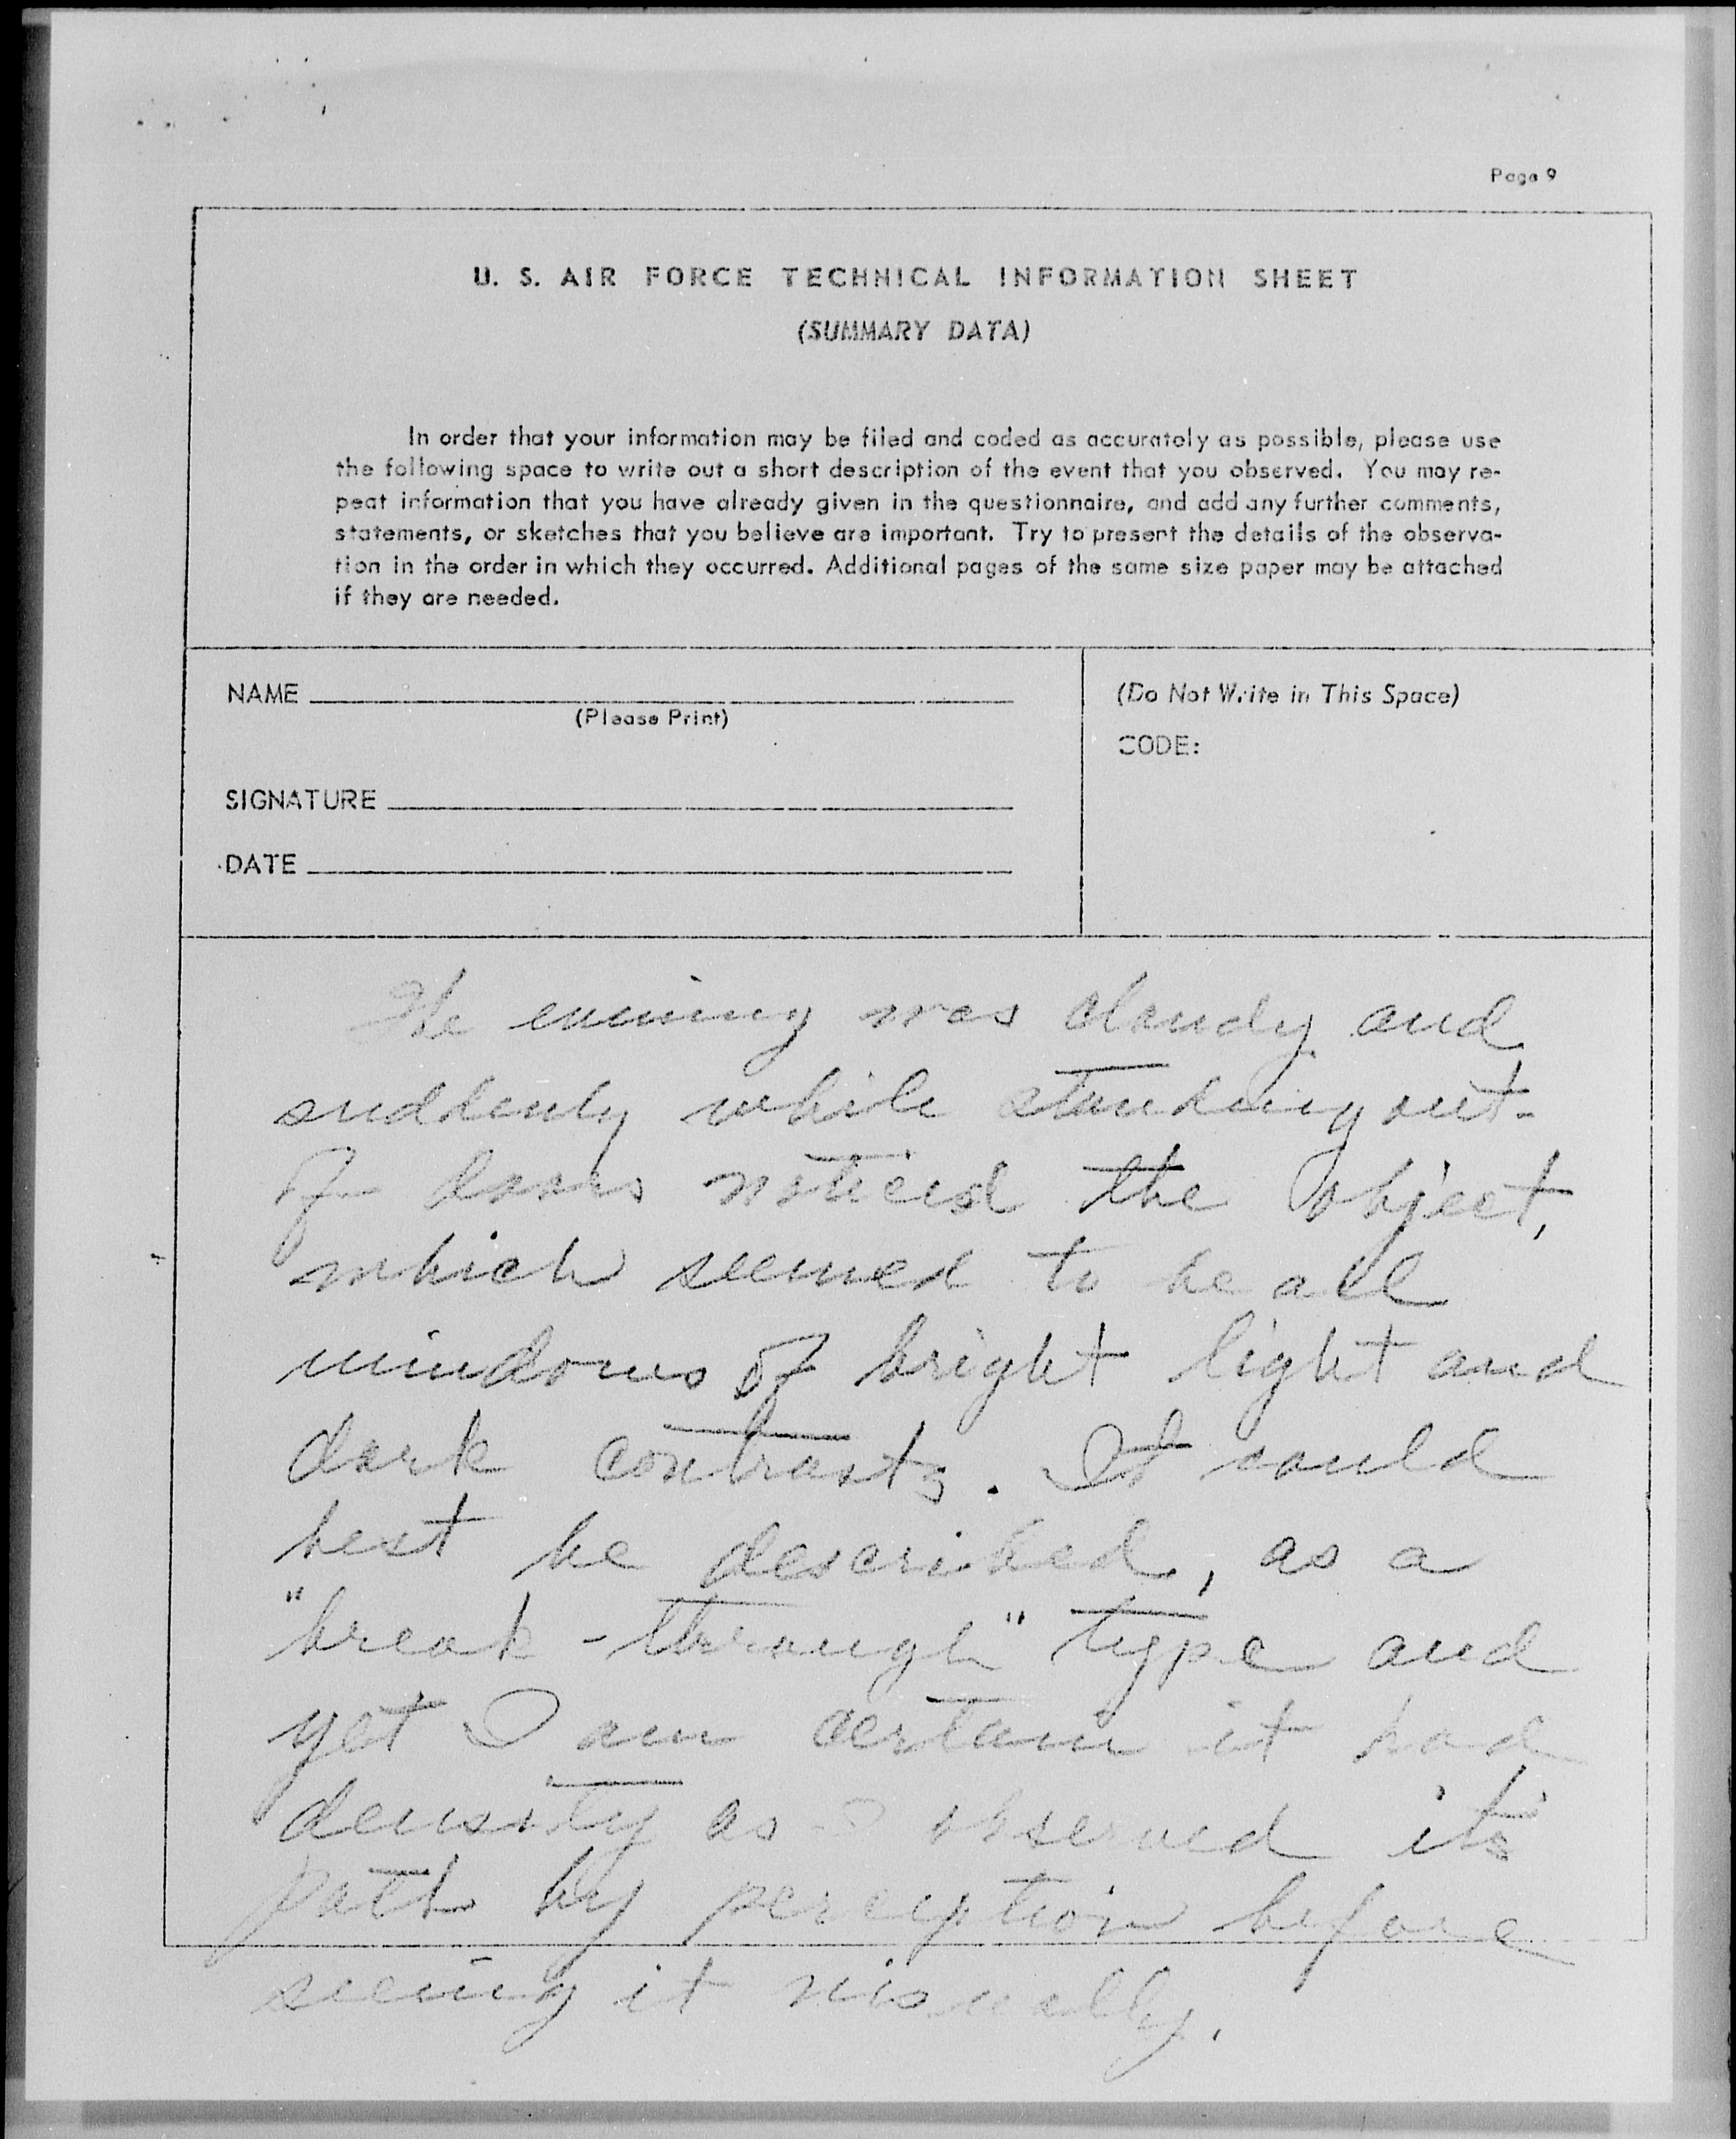 Page 9
U. S. AIR FORCE TECHNICAL INFORMATION SHEET
(SUMMARY DATA)
In order that your information may be filed and coded as accurately as possible, please use
the following space to write out a short description of the event that you observed. You may re-
peat information that you have already given in the questionnaire, and add any further comments,
statements, or sketches that you believe are important. Try to present the details of the observa-
tion in the order in which they occurred. Additional pages of the same size paper may be attached
if they are needed.
NAME
(Please Print)
SIGNATURE
DATE
(Do Not Write in This Space)
CODE:
The evening was cloudy and
suddenly while standing out-
of-doors noticed the object,
which seemed to be all
windows of bright light and
dark contrasts. It could
best be described, as a
"break-through" type and
yet I am certain it had
density as I observed its
path by perception before
seeing it visually.